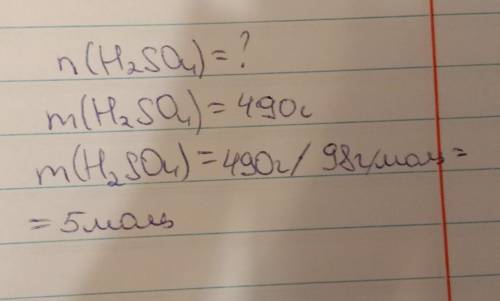 n(H₂SO₄)=?
m(H₂SO₄)=490г
m(H₂SO₄)=490г/98г/моль=
=5моль